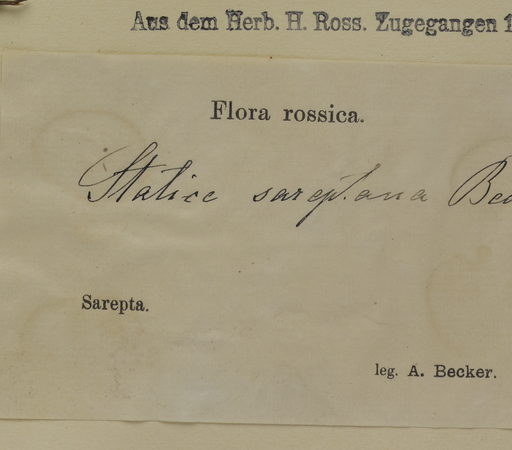 Aus dem Herb. H. Ross. Zugegangen 1
Flora rossica.
Statice sareptana Bec
Sarepta.
leg. A. Becker.